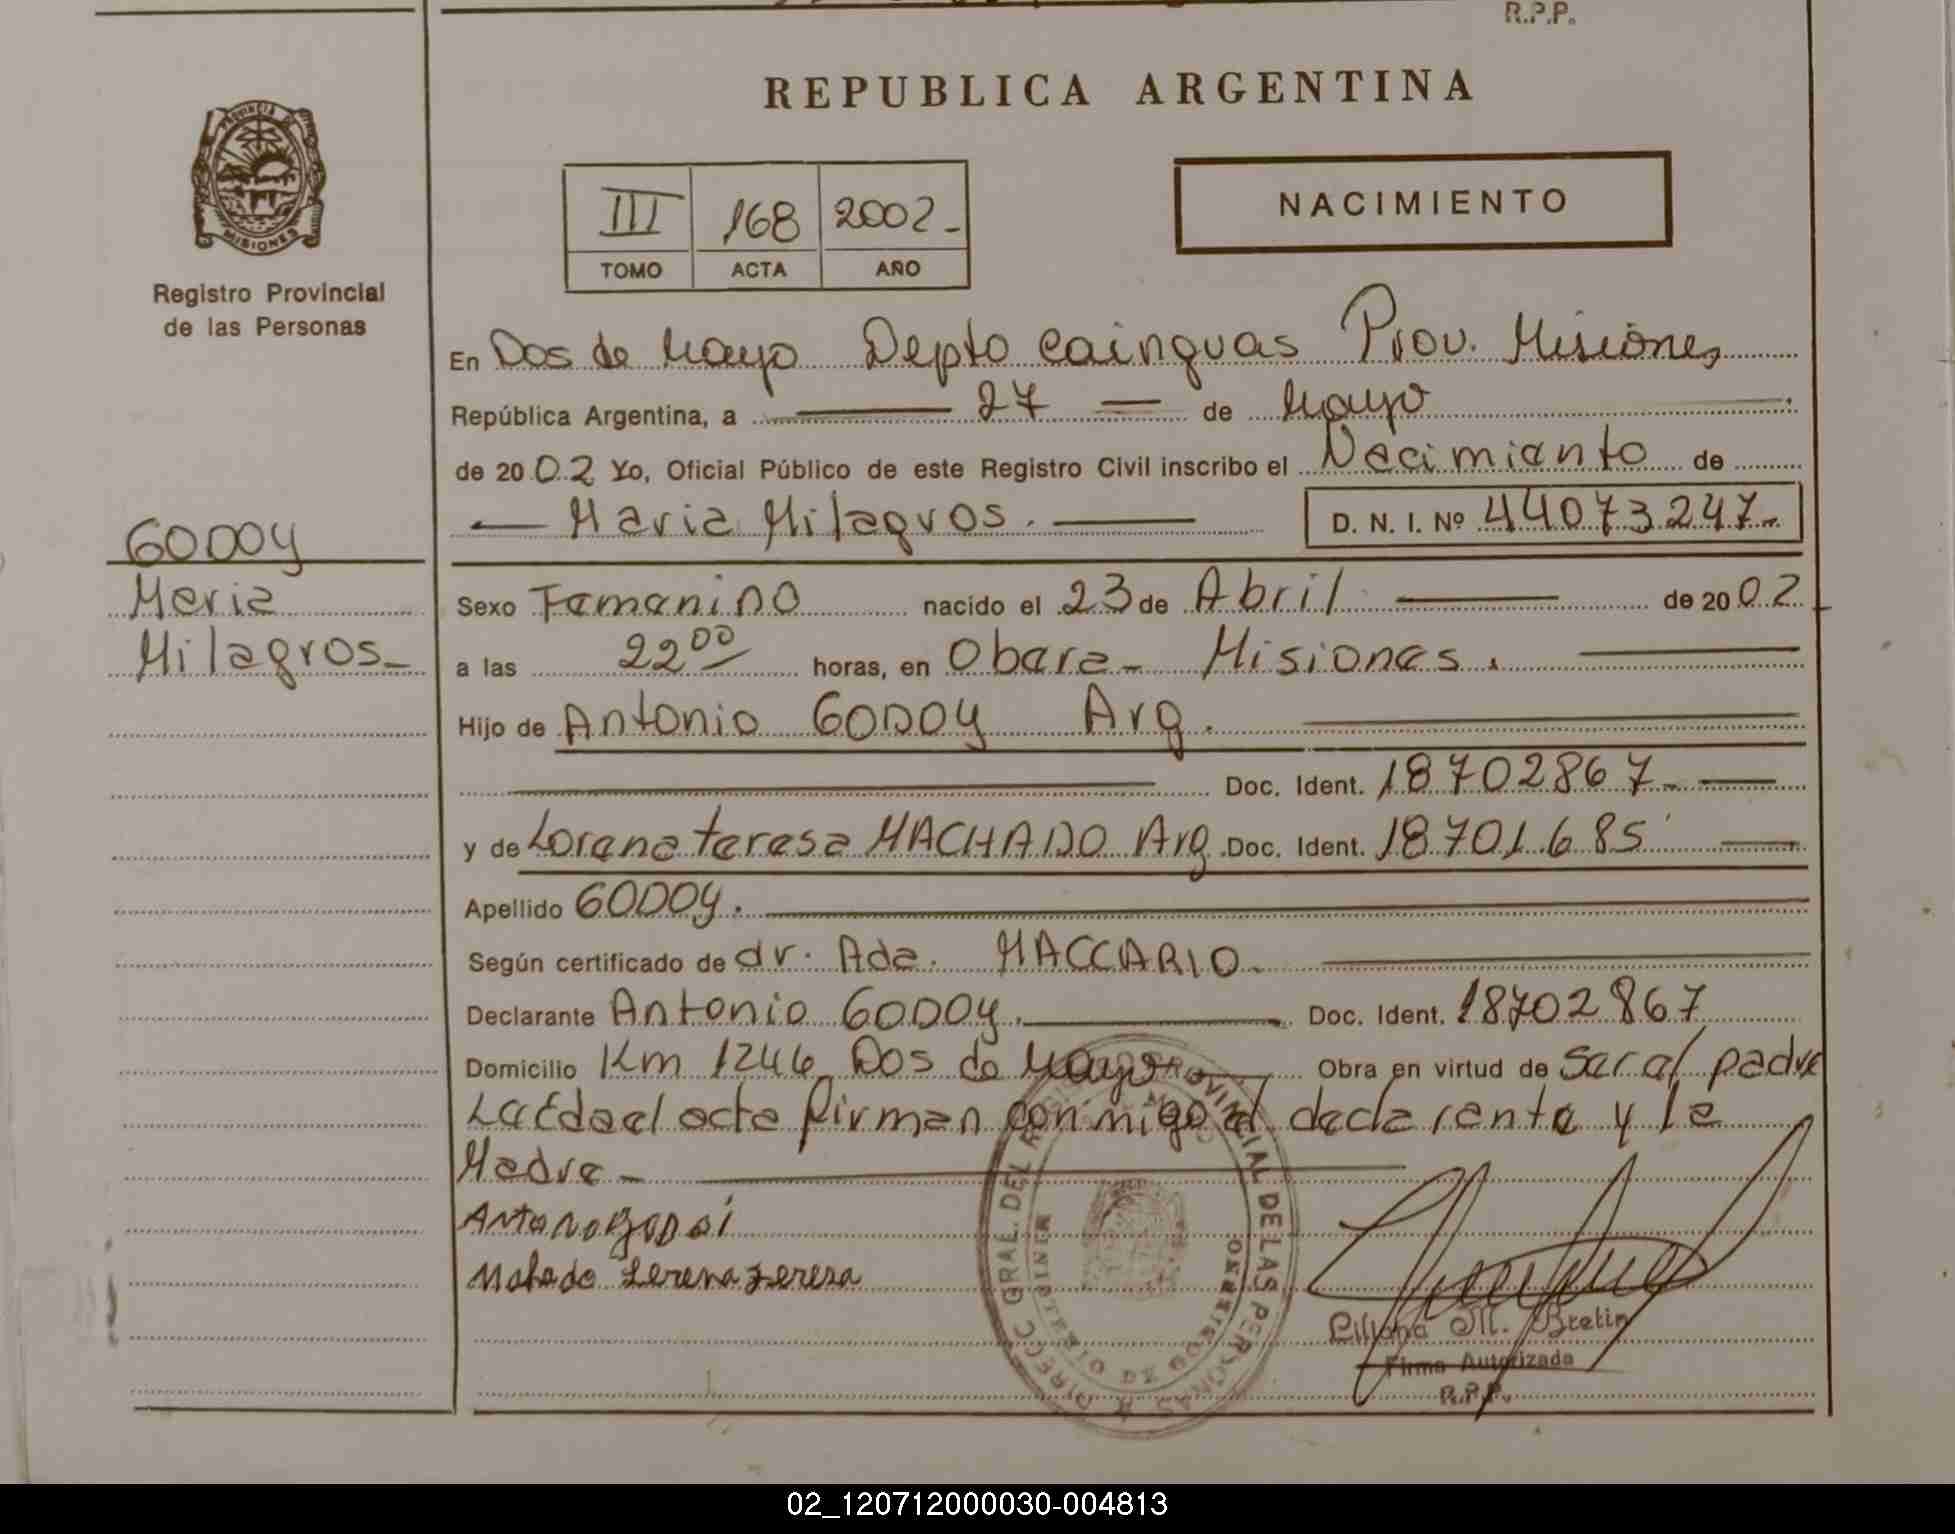 R.P.P.
REPUBLICA ARGENTINA
PROVINCIA DE
MISIONES
Registro Provincial
de las Personas
III 168 2002-
TOMO ACTA AÑO
NACIMIENTO
En Dos de Mayo Depto Cainguas Prov. Misiones
República Argentina, a 27 de Mayo
de 2002 Yo, Oficial Público de este Registro Civil inscribo el Nacimiento de
Maria Milagros. D. N. I. Nº 44073247-
GODOY
Maria
Milagros-
Sexo Femenino nacido el 23 de Abril de 2002
a las 22 00 horas, en Obera- Misiones.
Hijo de Antonio GODOY Arg.
Doc. Ident. 18702867-
y de Lorena teresa MACHADO Arg. Doc. Ident. 18701685
Apellido GODOY.
Según certificado de dr. Ada. MACCARIO-
Declarante Antonio GODOY. Doc. Ident. 18702867
Domicilio Km 1246 Dos de Mayo Obra en virtud de ser al padre
acta firman conmigo el declarente y la
Madre-
Mahado Lerena Jereza
DIREC. GRAL. DEL REGISTRO PROVINCIAL DE LAS PERSONAS
Liliana M. Bretin
Firma Autorizada
R.P.P.
02_120712000030-004813